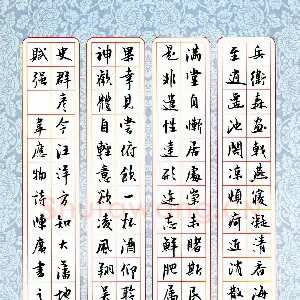 兵衛森畫戟燕寢凝清香海
至逍遙池閣涼煩疴近消散
滿堂自慚居處崇未睹斯民
是非遣性達形迹忘鮮肥屬
果幸見嘗俯飲一杯酒仰聆
神歡體自輕意欲凌風翔吳
史群彥今汪洋方知大藩地
賦強 韋應物詩陳廣書之